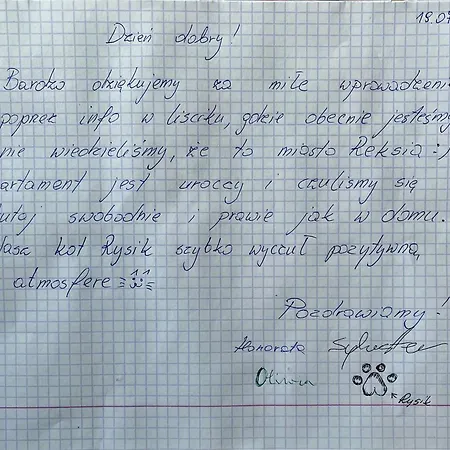 19.07
Dzień dobry!
Bardzo dziękujemy za miłe wprowadzeni
poprzez info w liściku, gdzie obecnie jesteśmy
nie wiedzieliśmy, że to miasto Reksia :)
artament jest uroczy i czuliśmy się
utaj swobodnie i prawie jak w domu.
asz kot Rysik szybko wyczuł pozytywną
atmosferę
Pozdrawiamy!
Honorata Sylwester
Oliwia
Rysik